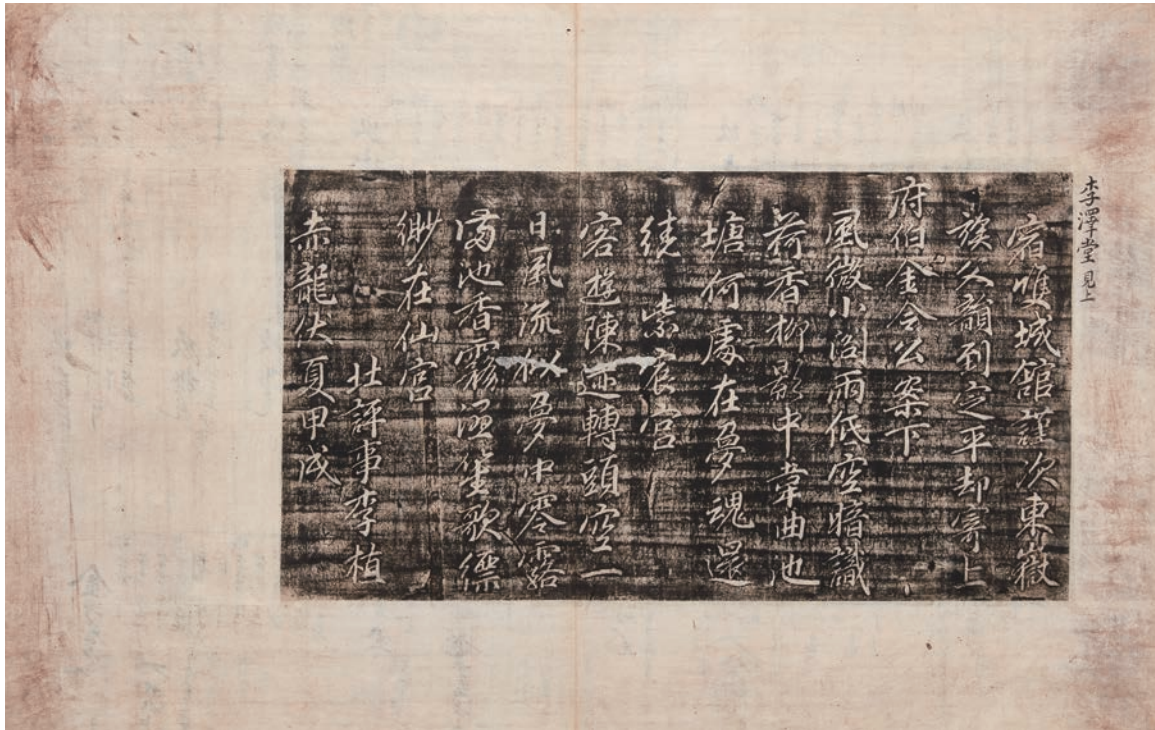 李澤堂 見上
宿雙城館謹次東嶽
族父韻到定平却寄上
府伯金令公案下
風微小閣雨低空暗識
荷香柳影中韋曲池
塘何處在夢魂還
繞 紫宸宮
客遊陳迹轉頭空一
日風流似夢中零露
滿池香霧濕笙歌縹
緲在仙宮
北評事李植
赤龍伏夏甲戌